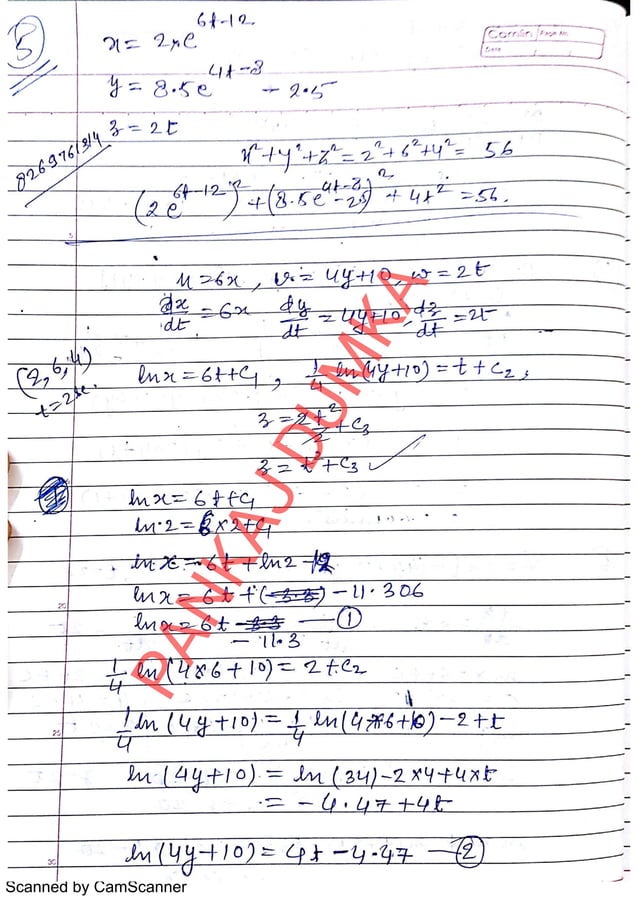 5
Camlin Page No.
Date
x = 2×e^{6t-12}
y = 8.5e^{4t-8} - 2.5
z = 2t
8269761914
x² + y² + z² = 2² + 6² + 4² = 56
(2e^{6t-12})² + (8.5e^{4t-8} - 2.5)² + 4t² = 56.
u = 6x, v = 4y+10, w = 2t
dx/dt = 6x dy/dt = 4y+10, dz/dt = 2t
(2,6,4)
t=2sec.
ln x = 6t + C₁, 1/4 ln(4y+10) = t + C₂,
z = 2t²/2 + C₃
z = t² + C₃ ✓
ln x = 6t + C₁
ln 2 = 6×2 + C₁
ln x = 6t + ln 2 - 12
ln x = 6t + (-3.3) - 11.306
ln x = 6t - 3.3 — ①
- 11.3
1/4 ln(4×6+10) = 2 + C₂
1/4 ln(4y+10) = 1/4 ln(4×6+10) - 2 + t
ln(4y+10) = ln(34) - 2×4 + 4×t
= -4.47 + 4t
ln(4y+10) = 4t - 4.47 — ②
PANKAJ DUMKA
5
20
25
30
Scanned by CamScanner